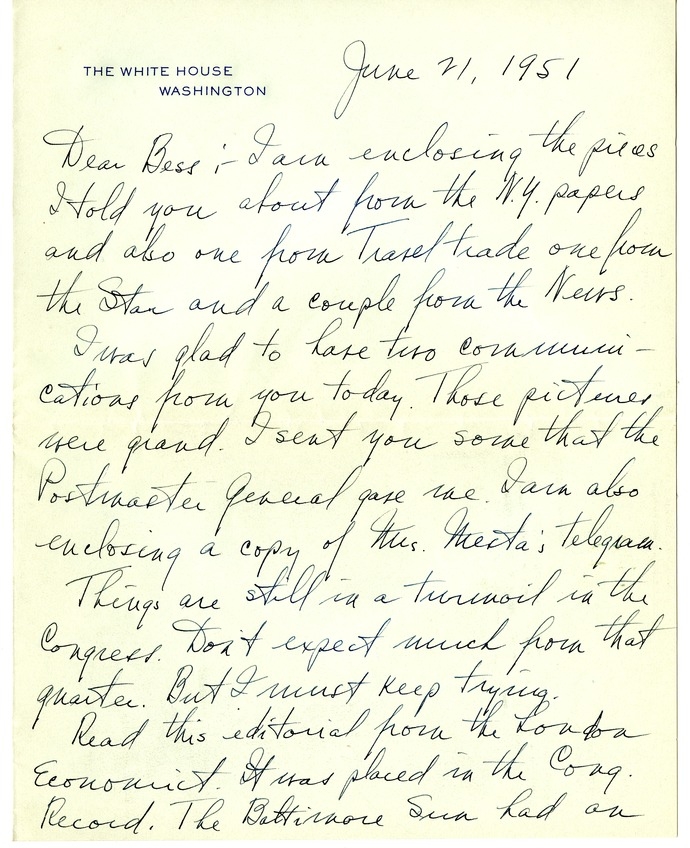 THE WHITE HOUSE
WASHINGTON
June 21, 1951
Dear Bess :- I am enclosing the pieces
I told you about from the N.Y. papers
and also one from Travel trade one from
the Star and a couple from the News.
I was glad to have two communi-
cations from you today. Those pictures
were grand. I sent you some that the
Postmaster General gave me. I am also
enclosing a copy of Mrs. Mesta's telegram.
Things are still in a turmoil in the
Congress. Don't expect much from that
quarter. But I must keep trying.
Read this editorial from the London
Economist. It was placed in the Cong.
Record. The Baltimore Sun had an